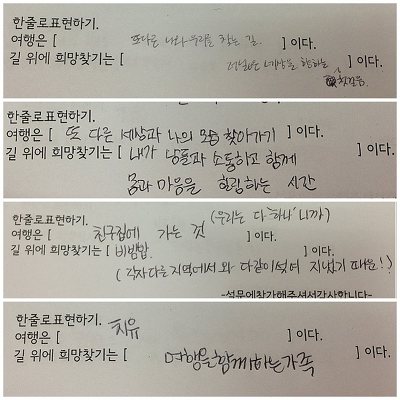 한줄로표현하기.
여행은 [ 또다른 나와 우리를 찾는 길. ] 이다.
길 위에 희망찾기는 [ 더넓은 세상을 향하는 ] 이다.
첫걸음.
한줄로표현하기.
여행은 [ 또 다른 세상과 나의 모습 찾아가기 ] 이다.
길 위에 희망찾기는 [ 내가 남들과 소통하고 함께 ] 이다.
몸과 마음을 힐링하는 시간
한줄로표현하기.
(우리는 다 '하나' 니까)
여행은 [ 친구집에 가는 것 ] 이다.
길 위에 희망찾기는 [ 비빔밥. ] 이다.
(각자 다른 지역에서 와 다같이 섞여 지냈기 때문!)
-설문에참가해주셔서감사합니다-
한줄로표현하기.
여행은 [ 치유 ] 이다.
길 위에 희망찾기는 [ 여행을 함께하는 가족 ] 이다.